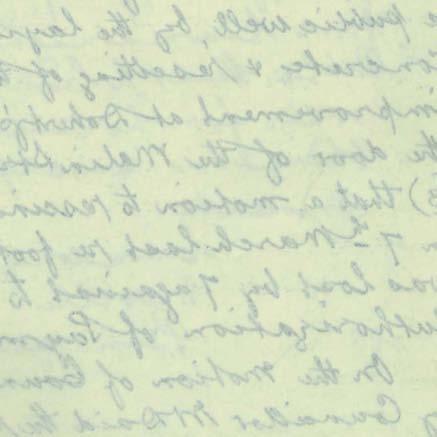 e public well, by the layi
concrete & resetting of
improvement at Doherty's
the door of the Malin Str
3) that a motion to rescin
n 7th March last re foot
was lost by 7 against to
authorization of Paym
On the motion of Coun
Councillor McDaid the